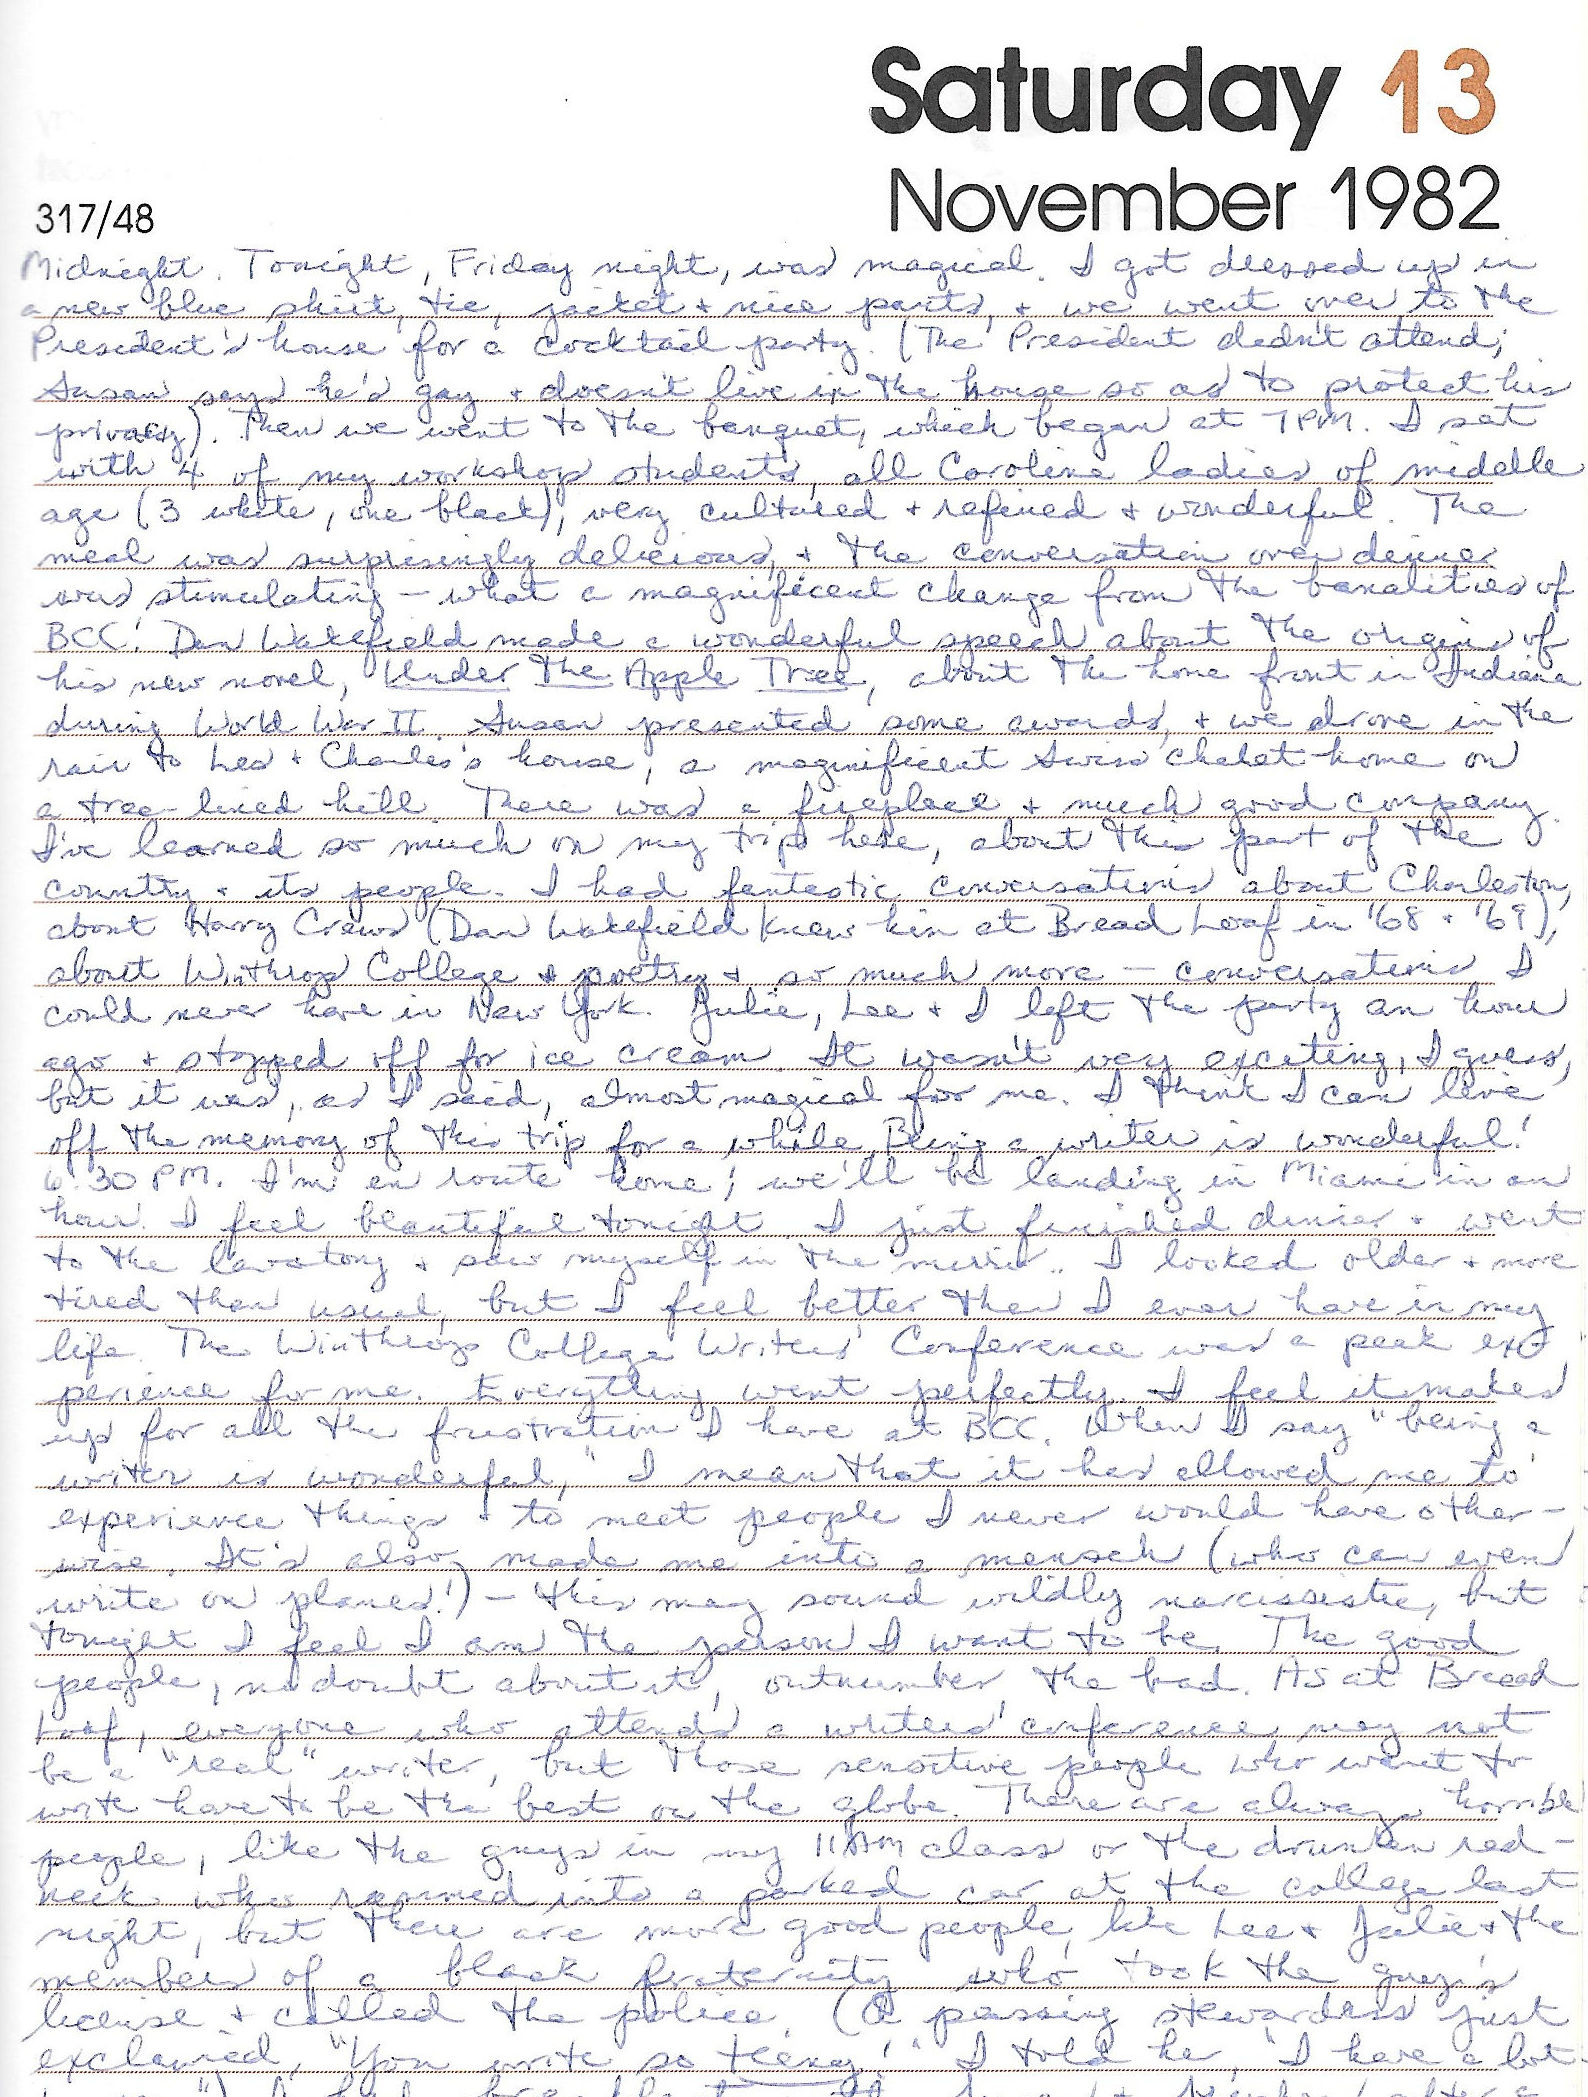 Saturday 13
November 1982
317/48
Midnight. Tonight, Friday night, was magical. I got dressed up in
a new blue shirt, tie, jacket + nice pants, + we went over to the
President's house for a cocktail party. (The President didn't attend;
Susan says he's gay + doesn't live in the house so as to protect his
privacy). Then we went to the banquet, which began at 7 PM. I sat
with 4 of my workshop students, all Carolina ladies of middle
age (3 white, one black), very cultured + refined + wonderful. The
meal was surprisingly delicious, + the conversation over dinner
was stimulating – what a magnificent change from the banalities of
BCC! Dan Wakefield made a wonderful speech about the origins of
his new novel, Under the Apple Tree, about the home front in Indiana
during World War II. Susan presented some awards, + we drove in the
rain to Les + Charles's house, a magnificent Swiss chalet home on
a tree-lined hill. There was a fireplace + much good company.
I've learned so much on my trip here, about this part of the
country + its people. I had fantastic conversations about Charleston,
about Harry Crews (Dan Wakefield knew him at Bread Loaf in '68 + '69),
about Winthrop College + poetry + so much more – conversations I
could never have in New York. Julie, Lee + I left the party an hour
ago + stopped off for ice cream. It wasn't very exciting, I guess,
but it was, as I said, almost magical for me. I think I can live
off the memory of this trip for a while. Being a writer is wonderful!
6:30 PM. I'm en route home; we'll be landing in Miami in an
hour. I feel beautiful tonight. I just finished dinner + went
to the lavatory + saw myself in the mirror. I looked older + more
tired than usual, but I feel better than I ever have in my
life. The Winthrop College Writers' Conference was a peak ex-
perience for me. Everything went perfectly. I feel it makes
up for all the frustration I have at BCC. When I say "being a
writer is wonderful," I mean that it has allowed me to
experience things + to meet people I never would have other-
wise. It's also made me into a mensch (who can even
write on planes!) – this may sound wildly narcissistic, but
tonight I feel I am the person I want to be. The good
people, no doubt about it, outnumber the bad. As at Bread
Loaf, everyone who attends a writers' conference may not
be a "real" writer, but those sensitive people who want to
write have to be the best on the globe. There are always horrible
people, like the guys in my 11 AM class or the drunken red-
neck who rammed into a parked car at the college last
night, but there are more good people, like Lee + Julie + the
members of a black fraternity who took the guy's
license + called the police. (A passing stewardess just
exclaimed, "You write so teeny!" I told her, "I have a lot